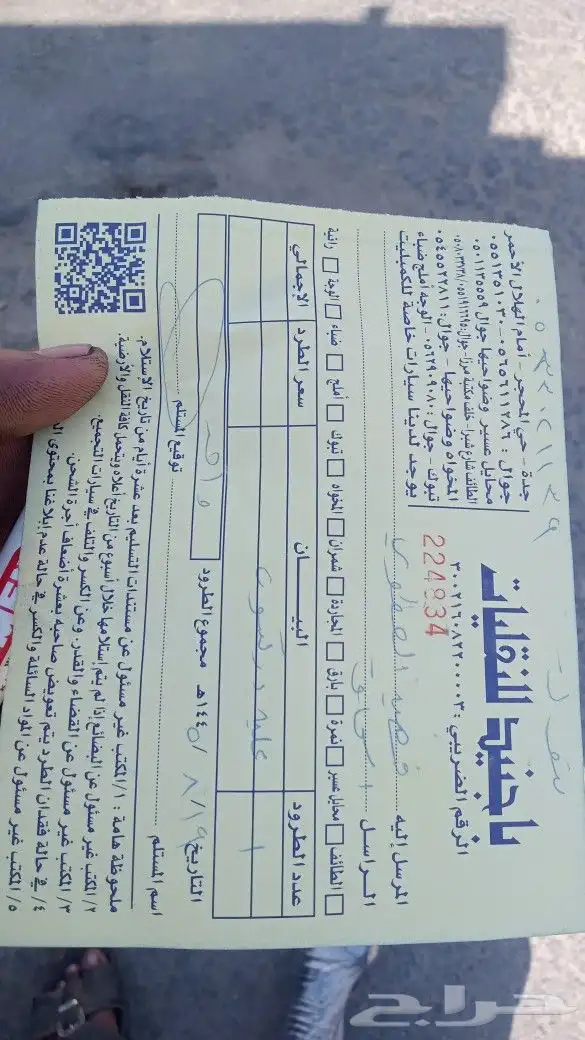 باخنيد للنقليات
الرقم الضريبي : ٣٠٠٢١٦٠٨٢٢٠٠٠٠٣
224934
جدة - حي المحجر - أمام الهلال الأحمر
جوال : ٠٥٦٥٦١١٢٨٦ - ٠٥٥١٣٥١٠٣٠
محايل عسير وضواحيها جوال ٠٥٠١١٣٥٥٥٩
المخواه وضواحيها جوال : ٠٥٤٥٥٢٢٨١١
تبوك - جوال : ٠٥٦٢٩٠٩٠٨٠ - الوجه املج ضباء
يوجد لدينا سيارات خاصة للكمبليت
المرسل إليه
الراسل
الطائف محايل عسير نمرة بارق المجاردة شمران المخواه تبوك أملج ضباء الوجة رانية
عدد الطرود البيــــان سعر الطرد الإجمالي
١
التاريخ ١٩ / ٨ / ١٤٤٥هـ مجموع الطرود واحد
اسم المستلم توقيع المستلم
ملحوظة هامة : ١/ المكتب غير مسئول عن مستندات التسليم بعد عشرة أيام من تاريخ الإستلام.
٢/ المكتب غير مسئول عن البضائع إذا لم يتم إستلامها خلال أسبوع من التاريخ أعلاه ويتحمل كافة النقل والأرضية.
٣/ المكتب غير مسئول عن القضاء والقدر. وعن الكسر والتلف في سيارات التجميع.
٤/ في حالة فقدان الطرد يتم تعويض صاحبه بعشرة أضعاف أجرة الشحن
٥/ المكتب غير مسئول عن المواد السائلة والكسر في حالة عدم إبلاغنا بمحتوى
حراج